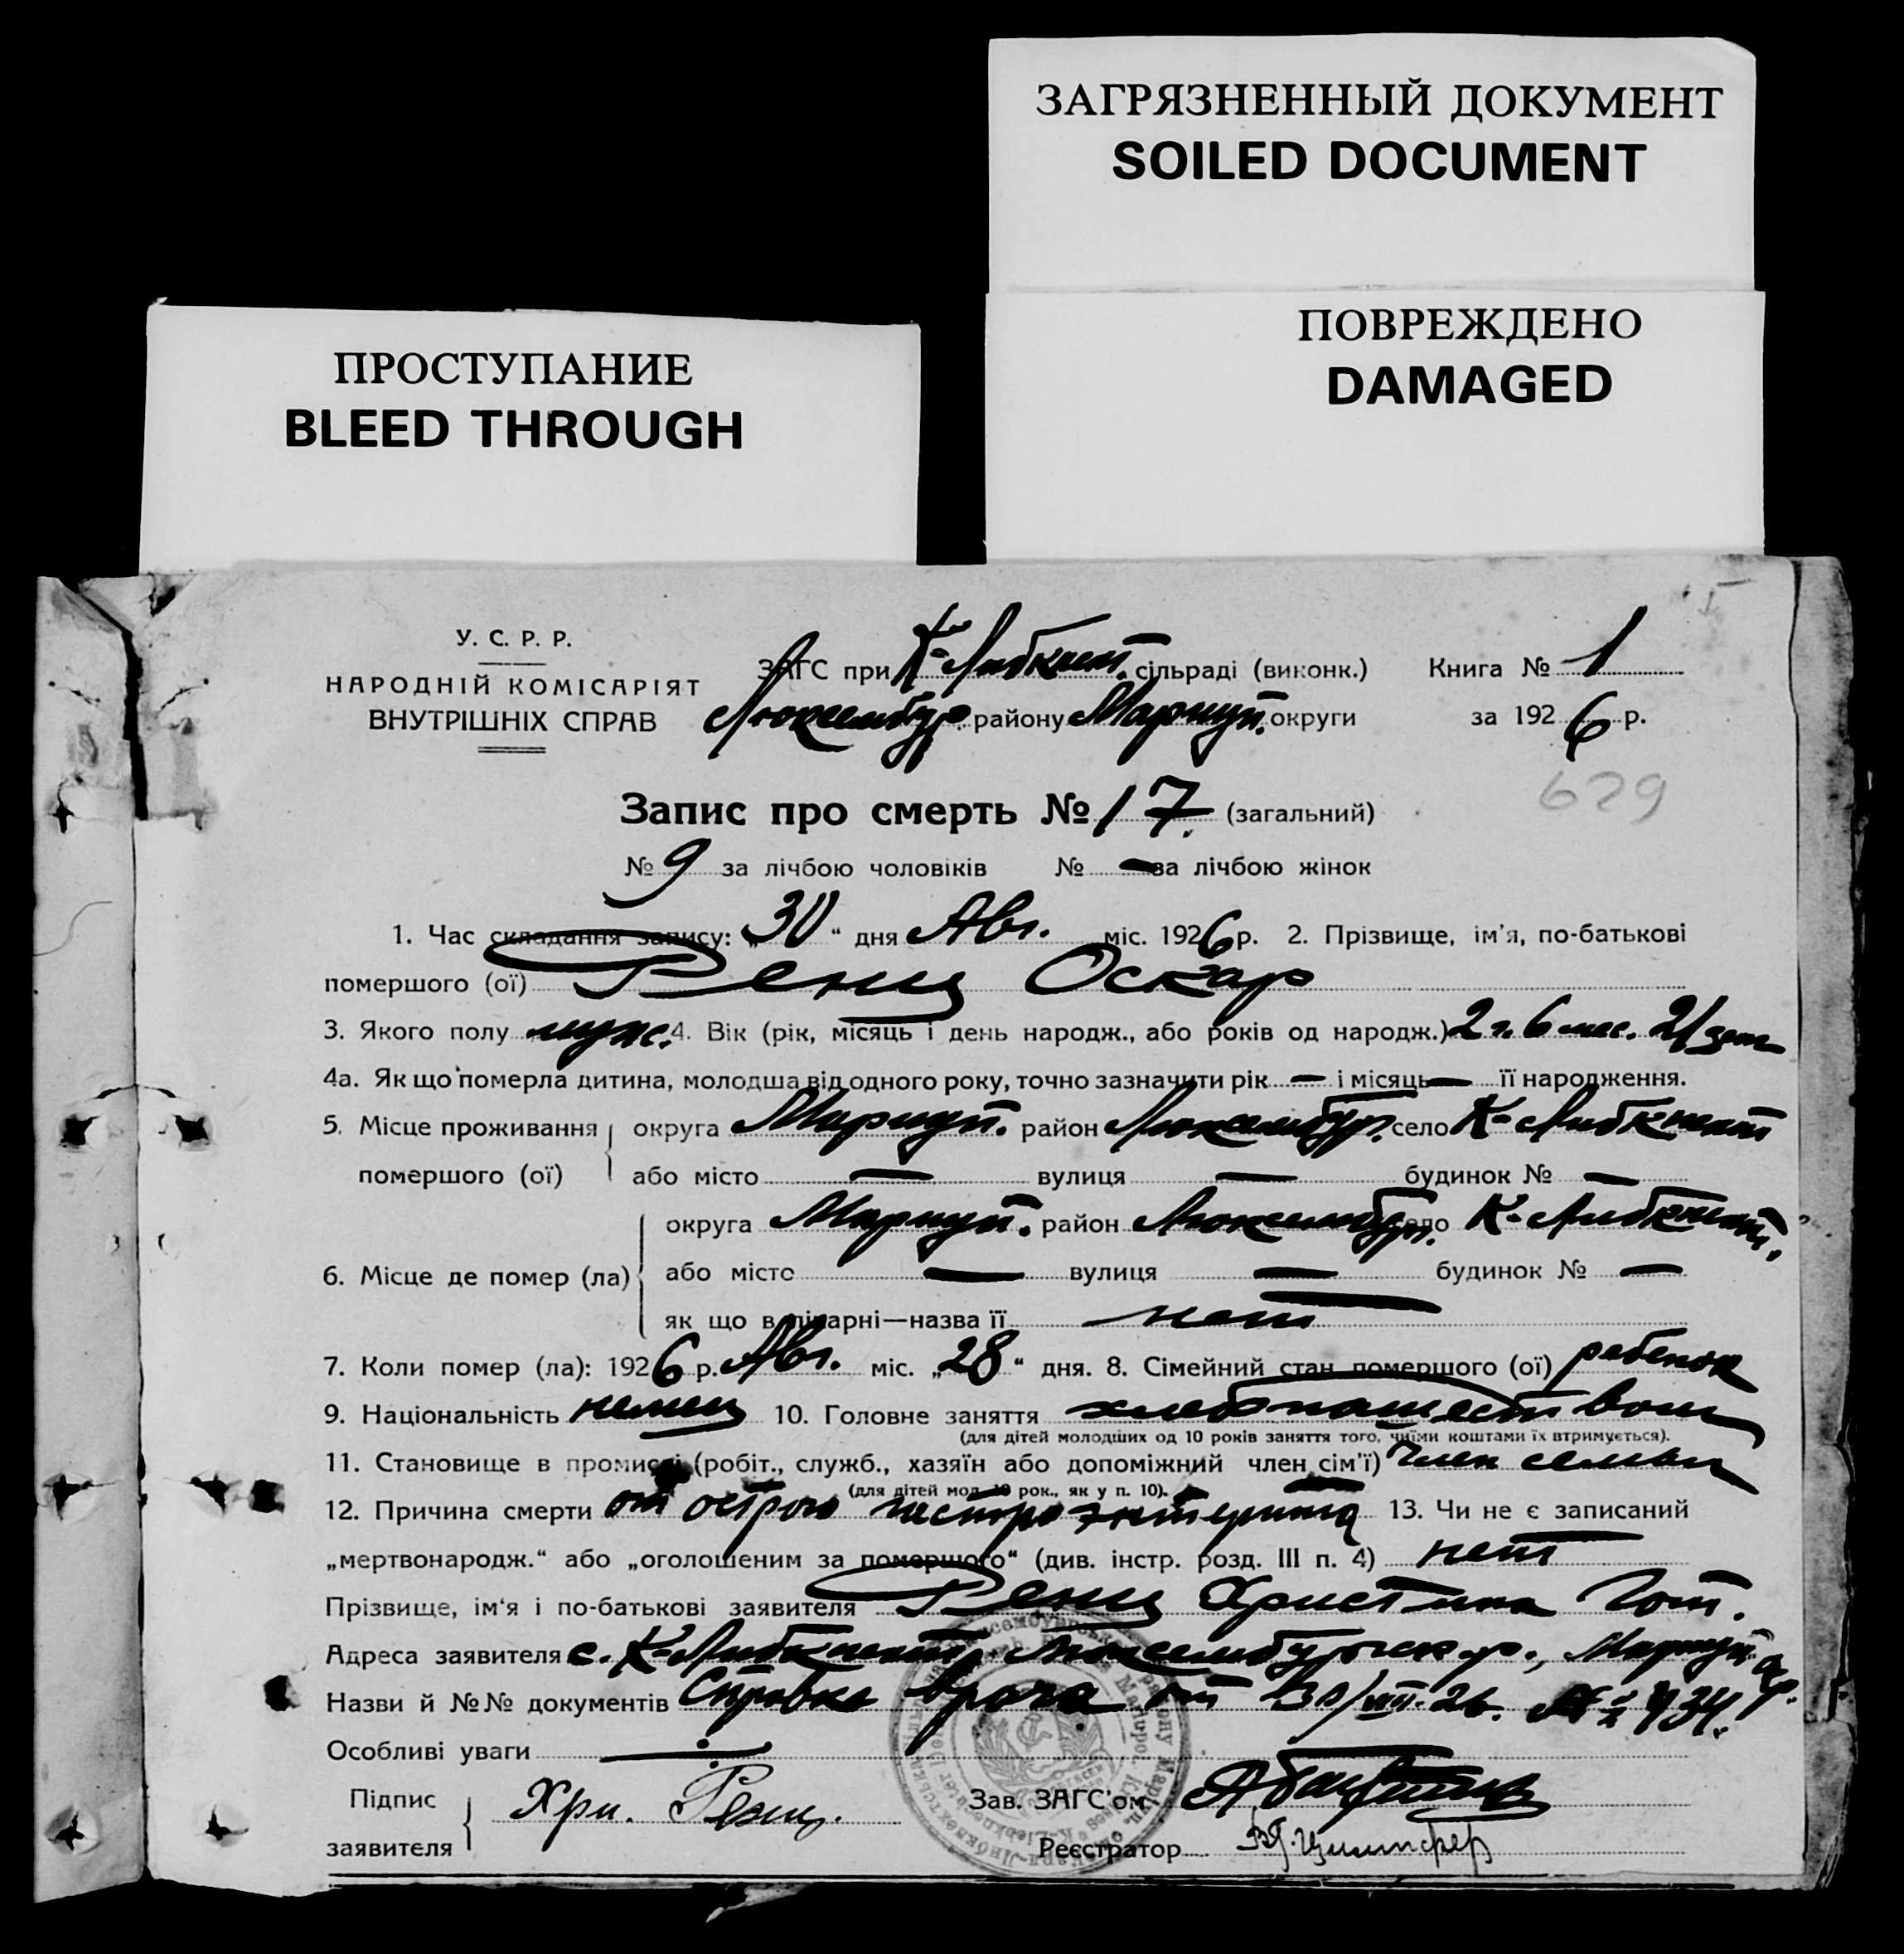 ЗАГРЯЗНЕННЫЙ ДОКУМЕНТ
SOILED DOCUMENT
ПОВРЕЖДЕНО
DAMAGED
ПРОСТУПАНИЕ
BLEED THROUGH
I
У. С. Р. Р.
НАРОДНІЙ КОМІСАРІЯТ
ВНУТРІШНІХ СПРАВ
ЗАГС при К-Либкнехт. сільраді (виконк.) Книга № 1
Люксембур. району Мариуп. округи за 1926 р.
629
Запис про смерть № 17. (загальний)
№ 9 за лічбою чоловіків № — за лічбою жінок
1. Час складання запису: „30“ дня Авг. міс. 1926 р. 2. Прізвище, ім'я, по-батькові
помершого (ої) Ренц Оскар
3. Якого полу муж. 4. Вік (рік, місяць і день народж., або років од народж.) 2 г. 6 мес. 21 дет
4а. Як що померла дитина, молодша від одного року, точно зазначити рік — і місяць — її народження.
5. Місце проживання помершого (ої) округа Мариуп. район Люксембур. село К-Либкнехт
або місто — вулиця — будинок № —
6. Місце де помер (ла) округа Мариуп. район Люксембур. село К-Либкнехт.
або місто — вулиця — будинок № —
як що в лікарні—назва її нет
7. Коли помер (ла): 1926 р. Авг. міс. „28“ дня. 8. Сімейний стан помершого (ої) ребенок
9. Національність немец 10. Головне заняття хлебопашеством
(для дітей молодших од 10 років заняття того, чиїми коштами їх втримується).
11. Становище в промислі (робіт., служб., хазяїн або допоміжний член сім'ї) член семьи
(для дітей мол. 10 рок., як у п. 10).
12. Причина смерти от острого гастроэнтерита 13. Чи не є записаний
„мертвонародж.“ або „оголошеним за помершого“ (див. інстр. розд. III п. 4) нет
Прізвище, ім'я і по-батькові заявителя Ренц Христина Гот.
Адреса заявителя с. К-Либкнехт, Люксембургск р., Мариуп окр.
Назви й №№ документів Справка врача от 30/VIII-26. № 934.
Особливі уваги —
Підпис заявителя Хри. Ренц.
Зав. ЗАГС'ом
Реєстратор